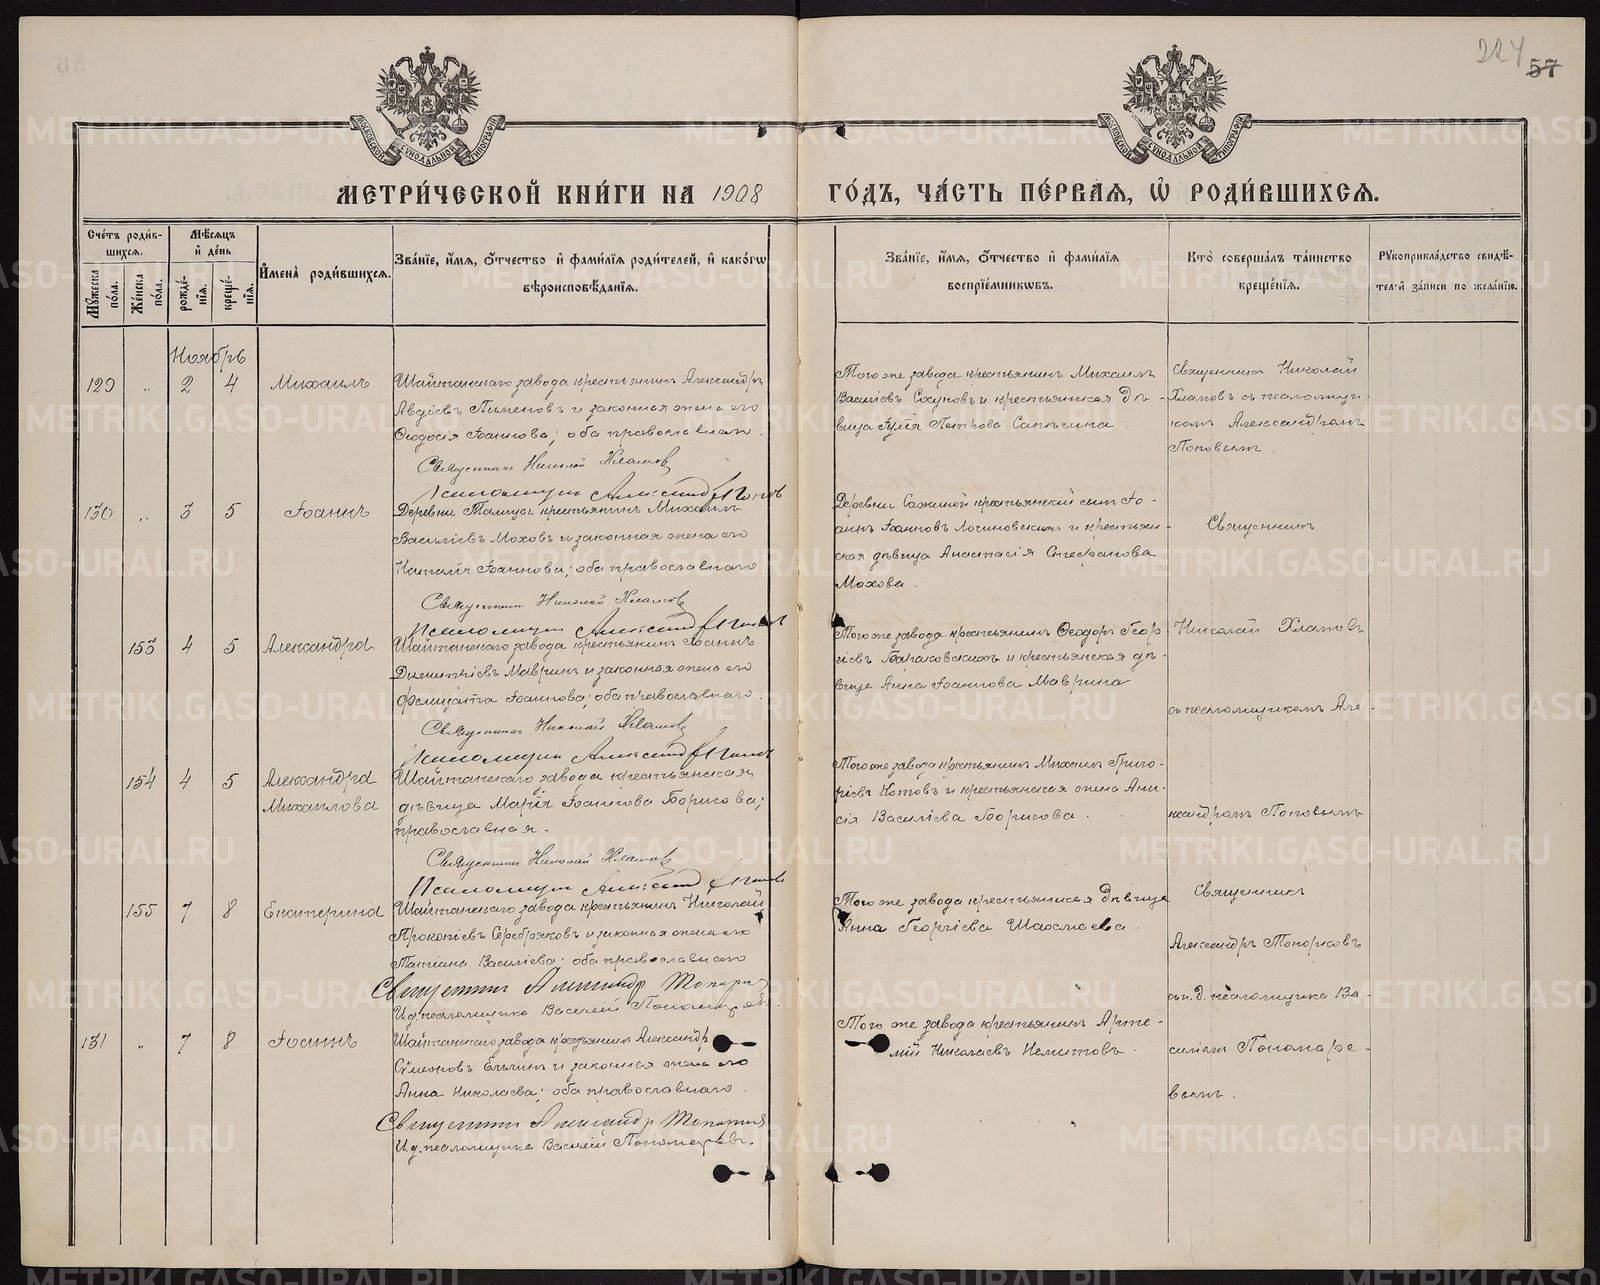 224 57
МОСКОВСКОЙ СѴНОДАЛЬНОЙ ТИПОГРАФІИ
МОСКОВСКОЙ СѴНОДАЛЬНОЙ ТИПОГРАФІИ
МЕТРИ́ЧЕСКОЙ КНИ́ГИ НА 1908
ГО́ДЪ, ЧА́СТЬ ПЕ́РВАЯ, Ѡ҆ РОДИ́ВШИХСЯ.
Сче́тъ роди́в-
шихся.
Мꙋ́жеска по́ла.
Же́нска по́ла.
Мѣ́сяцъ
и҆ де́нь
рожде́-
нїя.
креще́-
нїя.
И҆мена̀ роди́вшихся.
Зва́нїе, и҆́мя, о҆́тчество и҆ фами́лїя роди́телей, и҆ како́гѡ
вѣроисповѣ́данїя.
Зва́нїе, и҆́мя, о҆́тчество и҆ фами́лїя
воспрїе́мникѡвъ.
Кто̀ соверша́лъ та́инство
креще́нїя.
Рꙋкоприкла́дство свидѣ́-
телей за́писи по жела́нїю.
Ноябрь
129 „ 2 4 Михаилъ
Шайтанскаго завода крестьянин Александръ
Авдіевъ Пименовъ и законная жена его
Ѳеодосія Іоаннова; оба православнаго.
Священникъ Николай Хламов
Псаломщик Александр Попов
Того же завода крестьянинъ Михаилъ
Василіевъ Сохуновъ и крестьянская дѣ-
вица Юлія Петрова Сапѣгина
Священникъ Николай
Хламовъ съ псаломщи-
комъ Александромъ
Поповымъ.
130 „ 3 5 Іоаннъ
Деревни Талицы крестьянинъ Михаилъ
Василіевъ Моховъ и законная жена его
Наталія Іоаннова; оба православнаго
Священник Николай Хламов
Псаломщик Александр Попов
Деревни Сажиной крестьянскій сын Іо-
аннъ Іоанновъ Лосиновских и крестьян-
ская дѣвица Анастасія Стефанова
Мохова.
Священникъ
153 4 5 Александра
Шайтанскаго завода крестьянинъ Іоаннъ
Димитріевъ Мавринъ и законная жена его
Фелицата Іоаннова; оба православнаго.
Священникъ Николай Хламов
Псаломщик Александр Попов
Того же завода крестьянинъ Ѳеодоръ Геор-
гіевъ и крестьянская дѣ-
вица Анна Іоаннова Маврина
Николай Хламовъ
съ псаломщикомъ Але-
154 4 5 Александра
Михаилова
Шайтанскаго завода крестьянская
дѣвица Марія Іоаннова Борисова;
православная.
Священникъ Николай Хламов
Псаломщик Александр Попов
Того же завода крестьянинъ Михаилъ Григо-
ріевъ Котовъ и крестьянская жена Ани-
сія Василіева Борисова.
ксандромъ Поповымъ
155 7 8 Екатерина
Шайтанскаго завода крестьянинъ Николай
Прокопіевъ Серебряковъ и законная жена его
Татіана Василіева; оба православнаго
Священникъ Александр Топорков
И. д. псаломщика Василій Пономарёв.
Того же завода крестьянская дѣвица
Анна Георгіева Шахмаева.
Священникъ
Александръ Топорковъ
съ и. д. псаломщика Ва-
131 „ 7 8 Іоаннъ
Шайтанскаго завода крестьянинъ Александр
Сѵмеоновъ и законная жена его
Анна Николаева; оба православнаго.
Священникъ Александр Топорков
И. д. псаломщика Василій Пономарёв.
Того же завода крестьянинъ Арте-
мій Николаевъ
силіемъ Пономаре-
вымъ.
METRIKI.GASO-URAL.RU